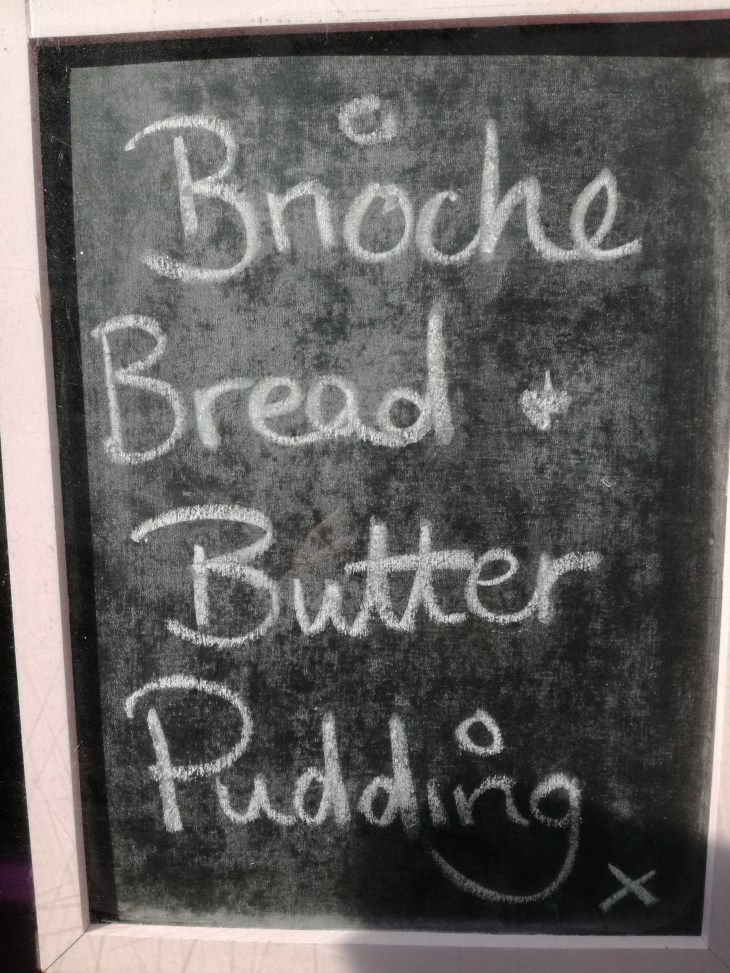 Brioche
Bread +
Butter
Pudding
x